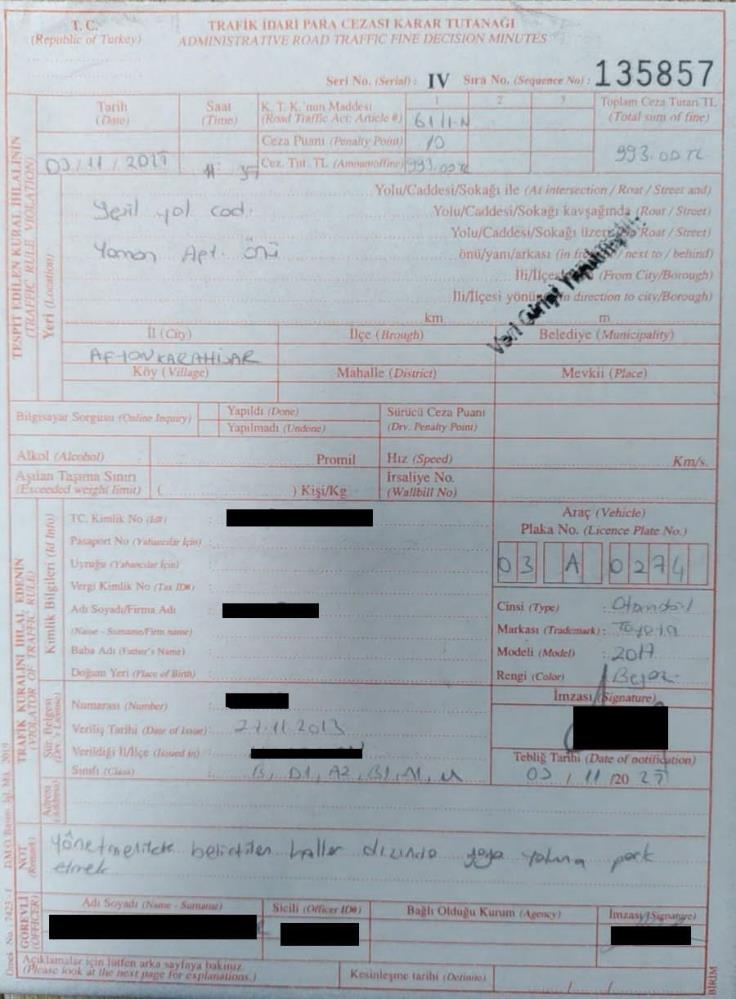 T. C.
(Republic of Turkey)
TRAFİK İDARİ PARA CEZASI KARAR TUTANAĞI
ADMINISTRATIVE ROAD TRAFFIC FINE DECISION MINUTES
Seri No. (Serial) : IV Sıra No. (Sequence No) : 135857
Tarih
(Date)
Saat
(Time)
K. T. K.'nun Maddesi
(Road Traffic Act: Article #)
1 2 3
61/1-N
Toplam Ceza Tutarı TL
(Total sum of fine)
Ceza Puanı (Penalty Point) 10
03/11/2025
Cez. Tut. TL (Amountoffine) 993.00 TL
993.00 TL
TESPİT EDİLEN KURAL İHLALİNİN
(TRAFFIC RULE VIOLATION)
Yeri (Location)
Yolu/Caddesi/Sokağı ile (At intersection / Roat / Street and)
Yeşil yol cad.
Yolu/Caddesi/Sokağı kavşağında (Roat / Street)
Yolu/Caddesi/Sokağı üzerinde (Roat / Street)
Yaman Apt. önü
önü/yanı/arkası (in front / next to / behind)
İli/İlçesi (From City/Borough)
İli/İlçesi yönüne (in direction to city/Borough)
Veri Girişi Yapılmıştır.
km m
İl (City) İlçe (Brough) Belediye (Municipality)
AFYONKARAHİSAR
Köy (Village) Mahalle (District) Mevkii (Place)
Bilgisayar Sorgusu (Online Inquiry)
Yapıldı (Done)
Yapılmadı (Undone)
Sürücü Ceza Puanı
(Drv. Penalty Point)
Alkol (Alcohol) Promil Hız (Speed) Km/s.
Aşılan Taşıma Sınırı
(Exceeded weight limit) ( ) Kişi/Kg
İrsaliye No.
(Wallbill No)
TRAFİK KURALINI İHLAL EDENİN
(VIOLATOR OF TRAFFIC RULE)
Kimlik Bilgileri (Id Info)
TC. Kimlik No (Id#) :
Pasaport No (Yabancılar İçin) :
Uyruğu (Yabancılar İçin) :
Vergi Kimlik No (Tax ID#) :
Adı Soyadı/Firma Adı :
(Name - Surname/Firm name)
Baba Adı (Father's Name) :
Doğum Yeri (Place of Birth) :
Araç (Vehicle)
Plaka No. (Licence Plate No.)
03 A 0274
Cinsi (Type) : Otomobil
Markası (Trademark) : Toyota
Modeli (Model) : 2017
Rengi (Color) : Beyaz
Sür. Belgesi
(Drv.'s License)
Numarası (Number) :
Veriliş Tarihi (Date of Issue) : 27.11.2013
Verildiği İl/İlçe (Issued in) :
Sınıfı (Class) : B, D1, A2, B1, A1, M
İmzası (Signature)
Tebliğ Tarihi (Date of notification)
03 / 11 /20 25
Adresi
(Address)
NOT
(Remark)
Yönetmelikte belirtilen haller dışında yaya yoluna park
etmek
GÖREVLİ
(OFFICER)
Adı Soyadı (Name - Surname) Sicili (Officer ID#) Bağlı Olduğu Kurum (Agency) İmzası (Signature)
Açıklamalar için lütfen arka sayfaya bakınız.
(Please look at the next page for explanations.)
Kesinleşme tarihi (Definite) / /
BİRİM
Örnek No : 7423 - 1 D.M.O. Basım. İşl. Md. 2019